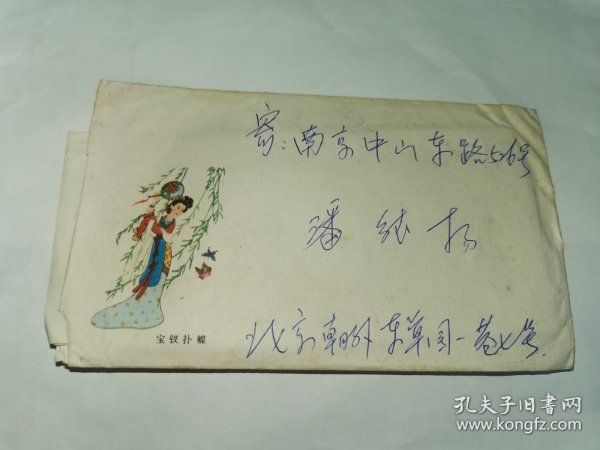 寄：南京中山东路526号
潘纯扬
北京朝外东草园一巷七号
宝钗扑蝶
孔夫子旧书网
www.kongfz.com